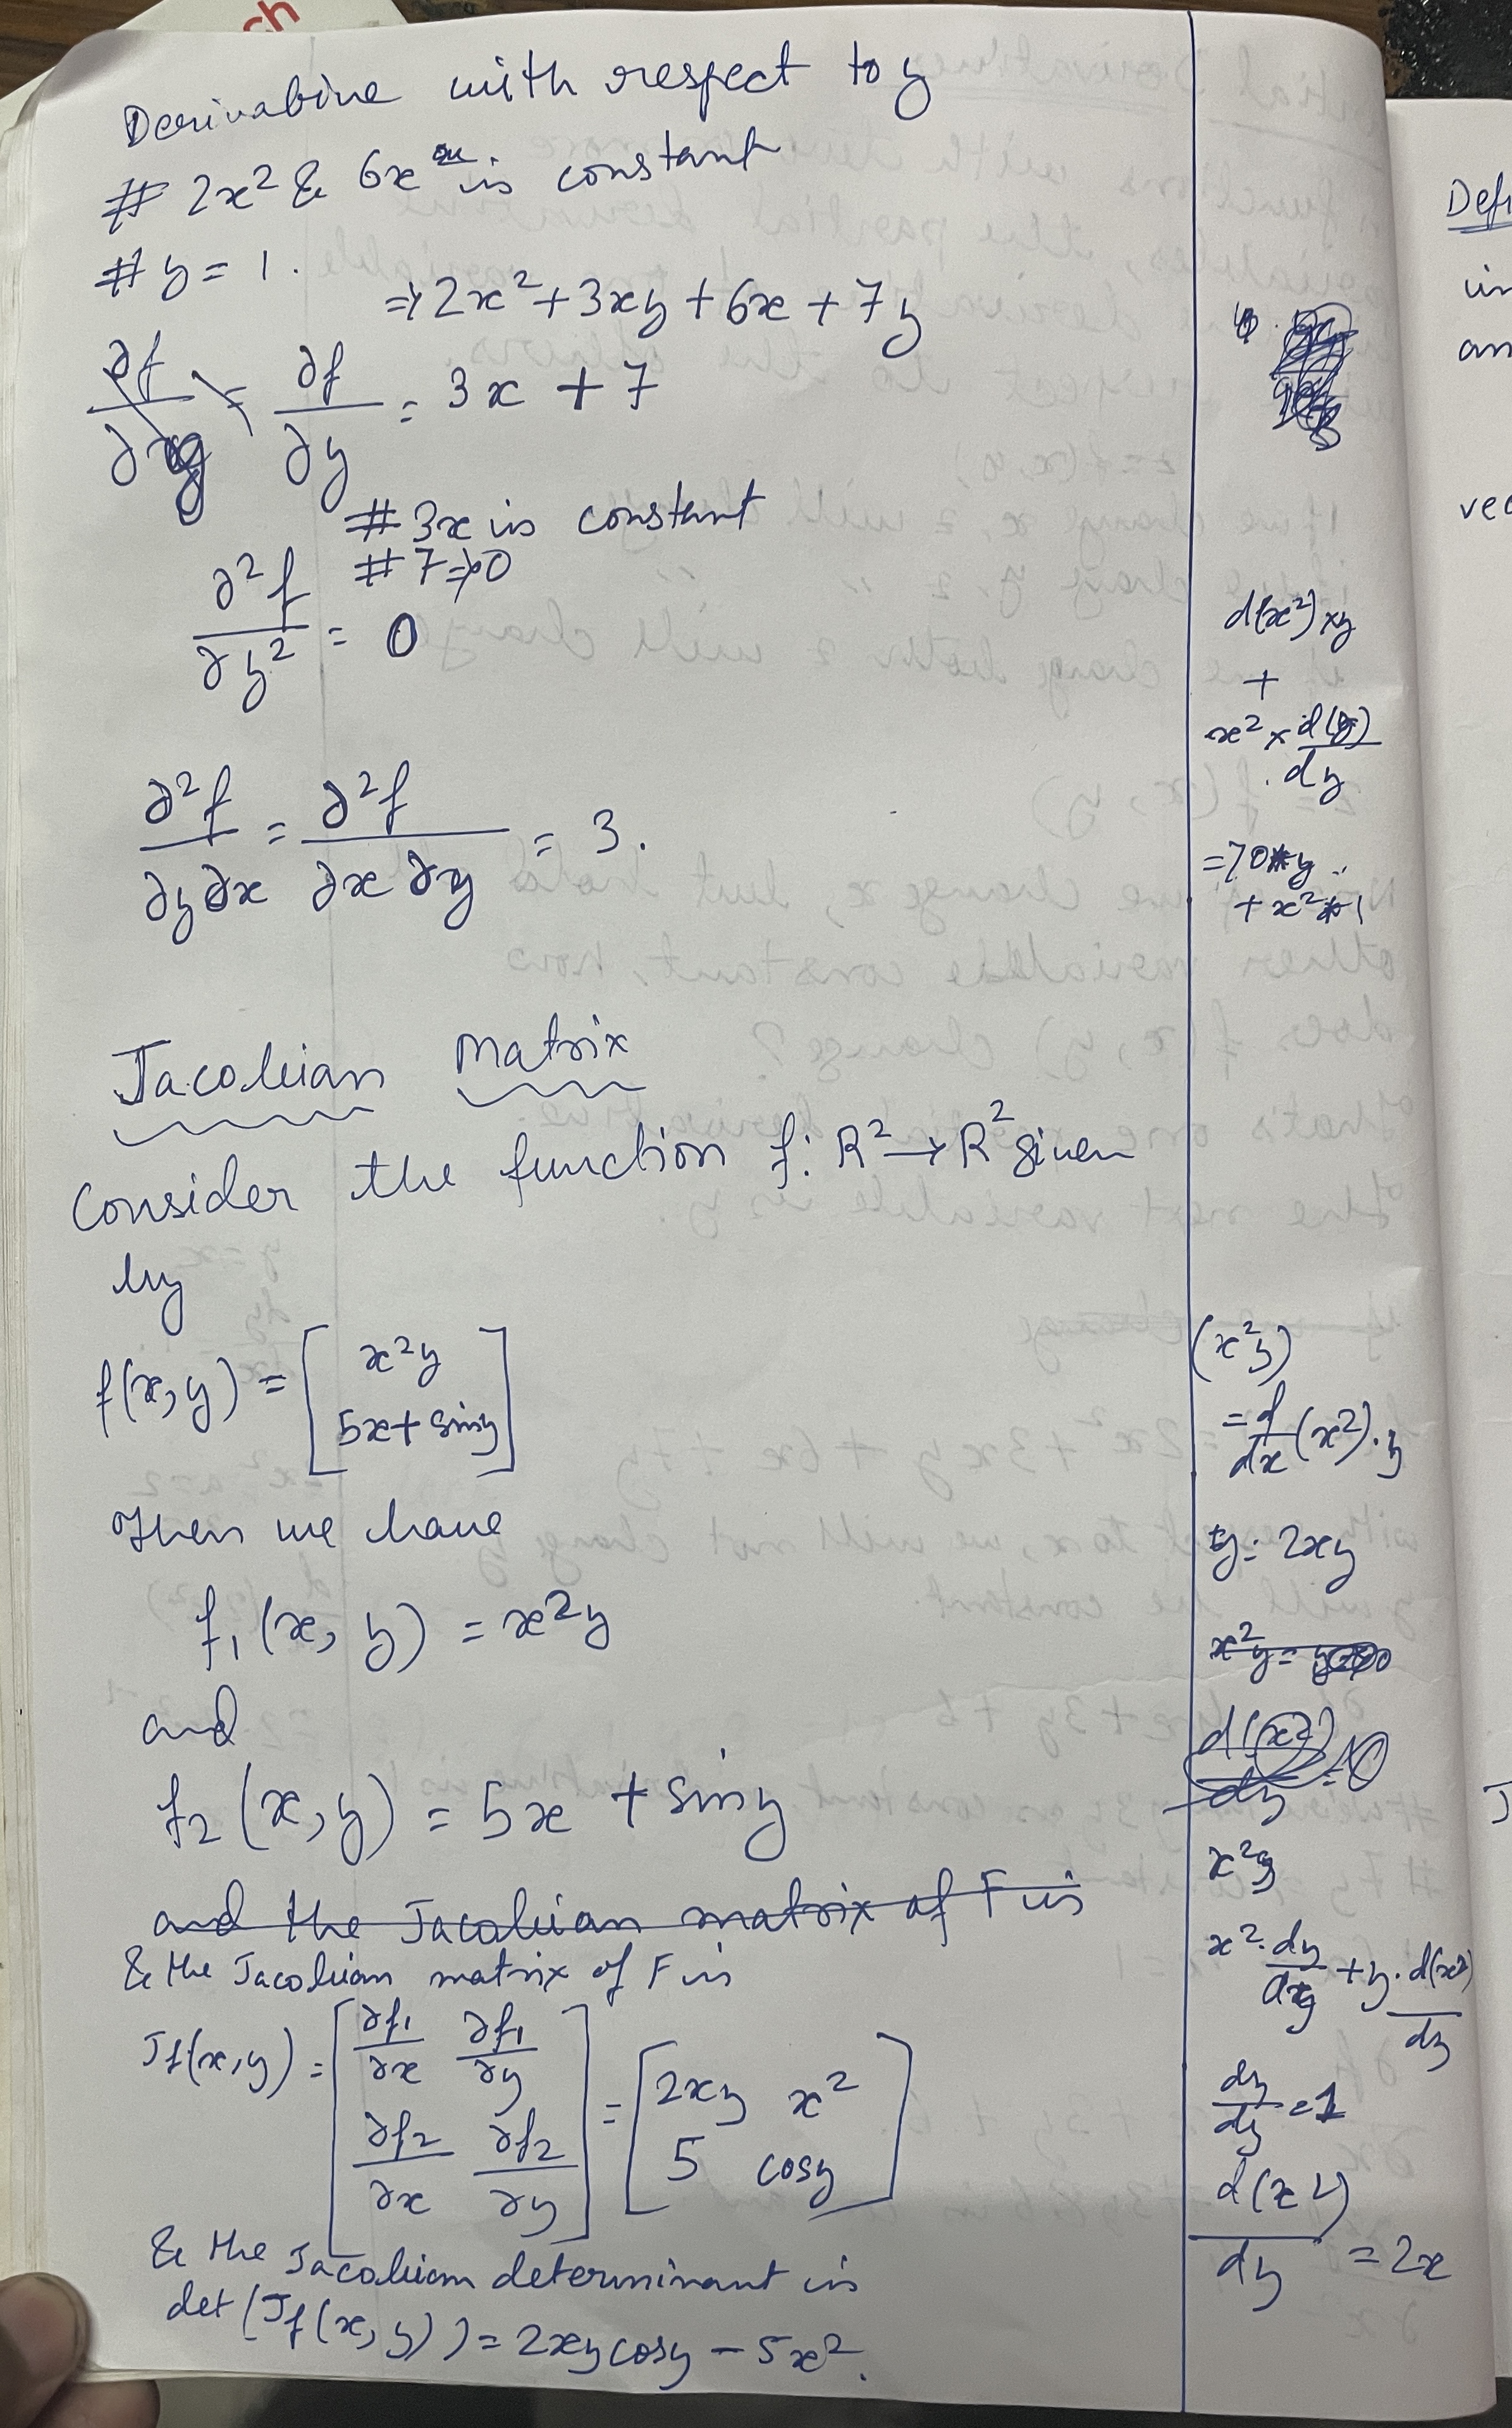 ch
Derivative with respect to y
# 2x² & 6x is constant
# y = 1.
⇒ 2x² + 3xy + 6x + 7y
∂f/∂y = 3x + 7
# 3x is constant
# 7 ⇒ 0
∂²f/∂y² = 0
∂²f/∂y∂x = ∂²f/∂x∂y = 3.
Jacobian Matrix
Consider the function f: R² → R² given
by
f(x, y) = [x²y
5x + siny]
Then we have
f₁(x, y) = x²y
and
f₂(x, y) = 5x + siny
and the Jacobian matrix of F is
& the Jacobian matrix of F is
Jf(x, y) = [∂f₁/∂x ∂f₁/∂y
∂f₂/∂x ∂f₂/∂y] = [2xy x²
5 cosy]
& the Jacobian determinant is
det(Jf(x, y)) = 2xycosy − 5x².
d(x²) × y
+
x² × d(y)/dy
⇒ 0 * y
+ x² * 1
(x²y)
= d/dx (x²) . y
= 2xy
x²y =
d(x²)/dy = 0
x²y
x² . dy/dy + y . d(x²)/dy
dy/dy = 1
d(x²)/dy = 2x
Defi
in
an
vec
J